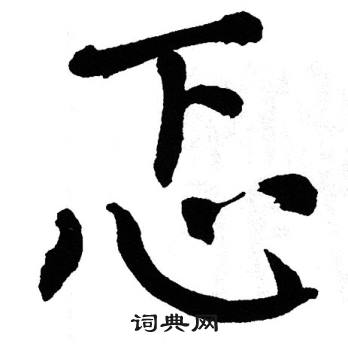 忑
词典网